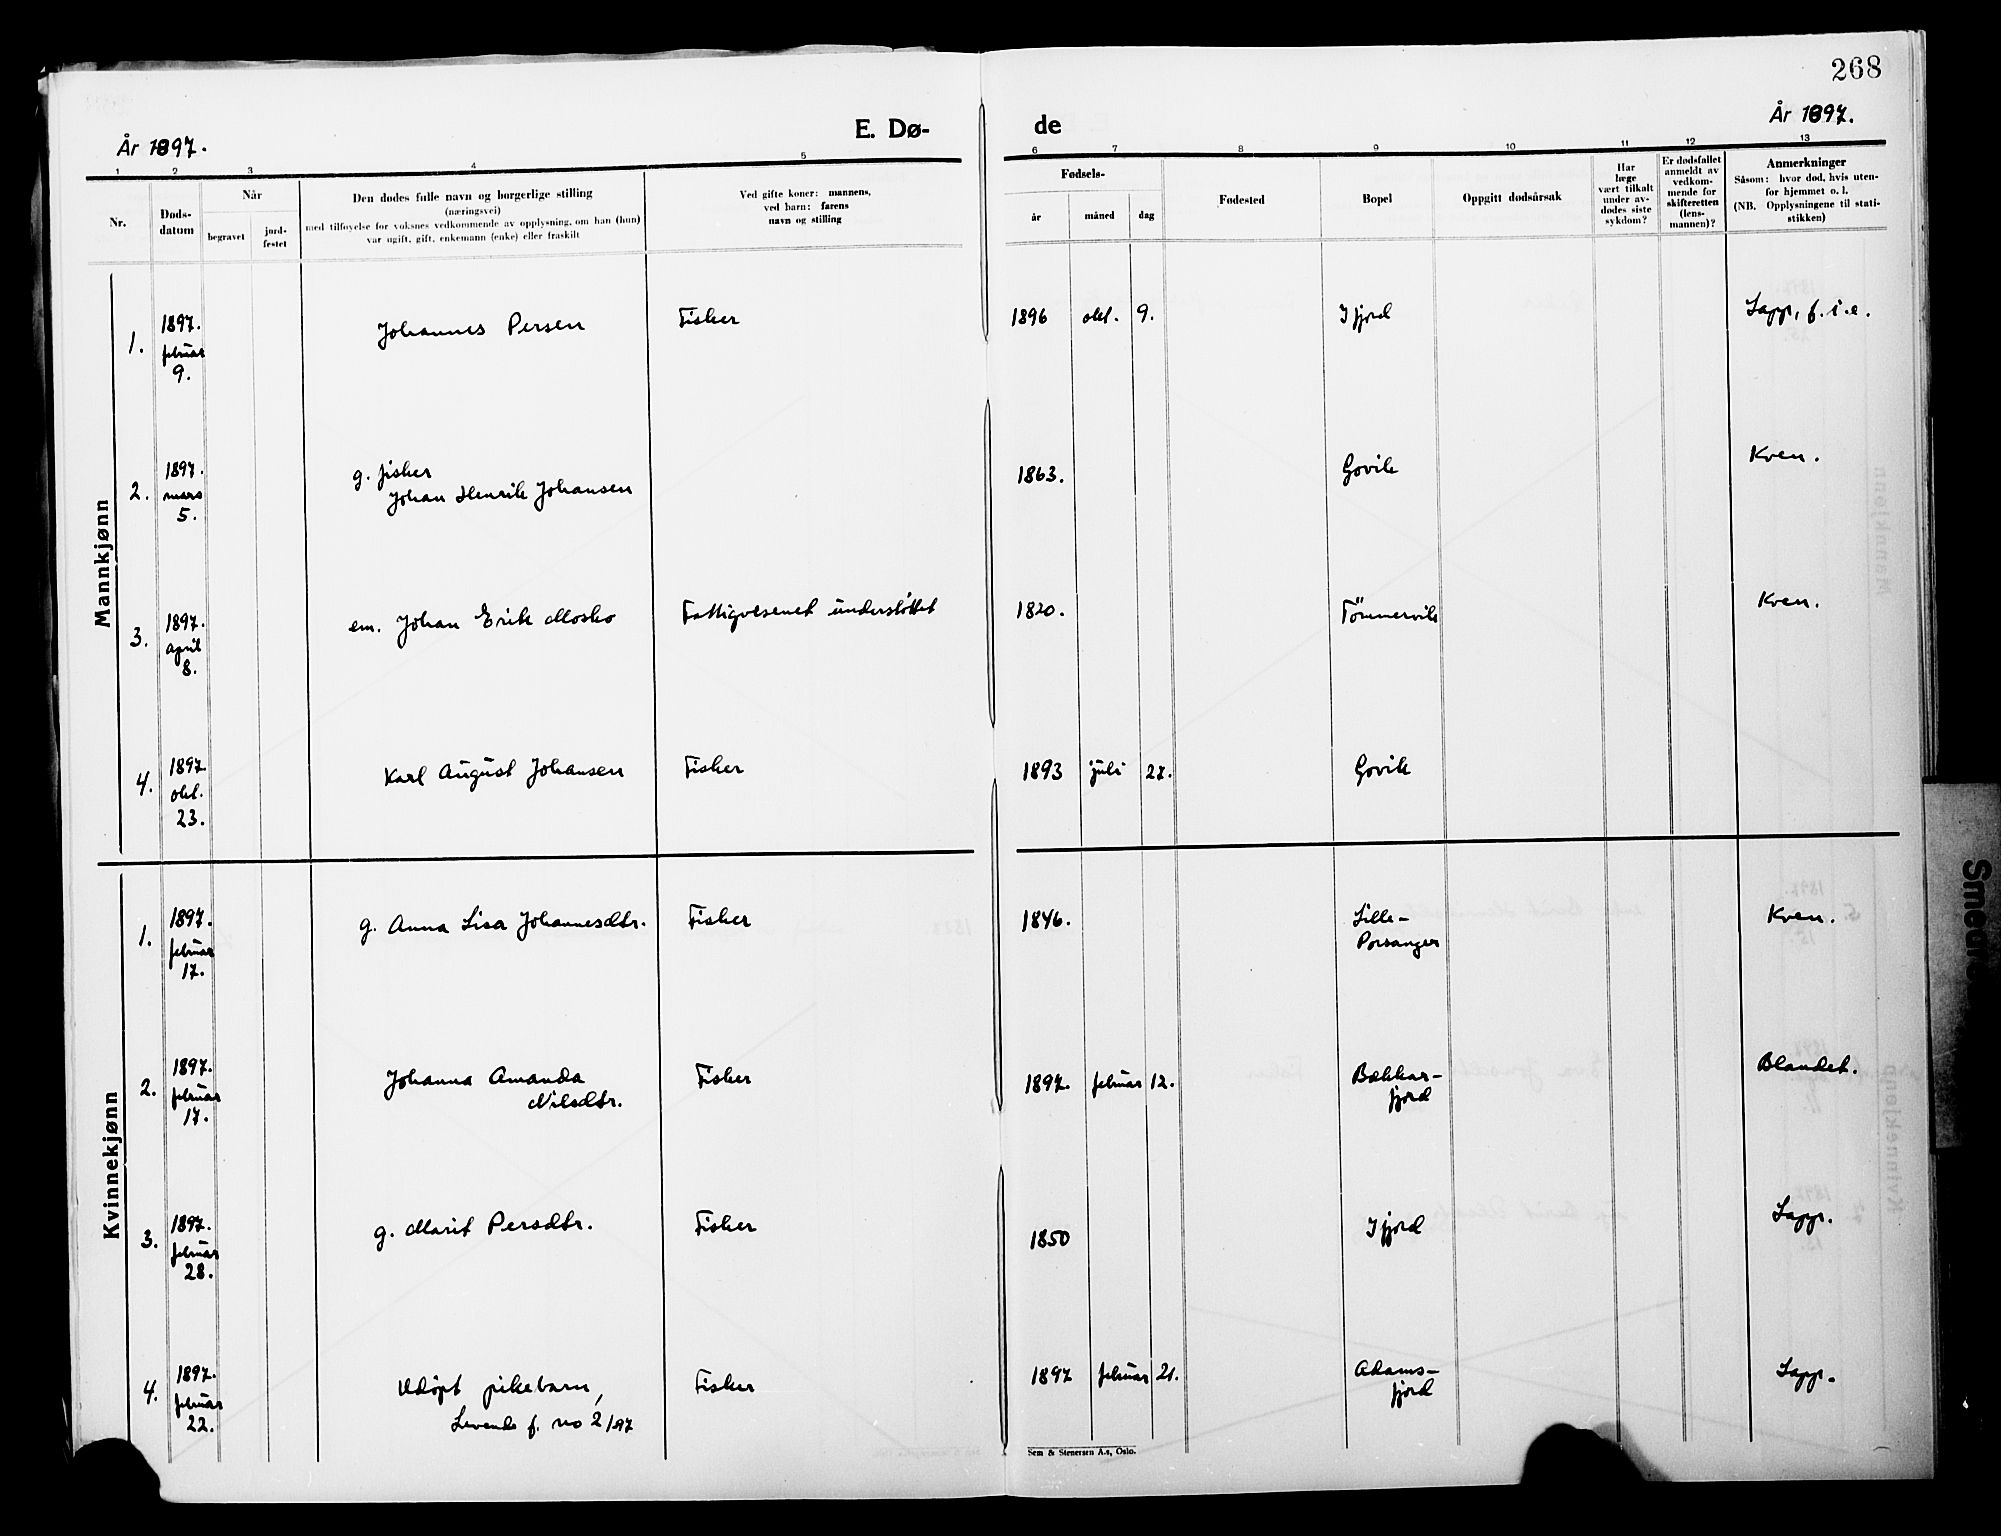 268
År 1897.
E. Dø-
de
År 1897.
1 2 3 4 5 6 7 8 9 10 11 12 13
Nr.
Døds-
datum
Når
begravet
jord-
festet
Den dødes fulle navn og borgerlige stilling
(næringsvei)
med tilføyelse for voksnes vedkommende av opplysning, om han (hun)
var ugift, gift, enkemann (enke) eller fraskilt
Ved gifte koner: mannens,
ved barn: farens
navn og stilling
Fødsels-
år
måned
dag
Fødested
Bopel
Oppgitt dødsårsak
Har
læge
vært tilkalt
under av-
dødes siste
sykdom?
Er dødsfallet
anmeldt av
vedkom-
mende for
skifteretten
(lens-
mannen)?
Anmerkninger
Såsom: hvor død, hvis uten-
for hjemmet o. l.
(NB. Opplysningene til stati-
stikken)
Mannkjønn
1. 1897. februar 9. Johannes Persen Fisker 1896 okt. 9. Ifjord Lapp, f. i. e.
2. 1897. mars 5. g. fisker
Johan Henrik Johansen 1863. Govik Kven.
3. 1897. april 8. em. Johan Erik Mosko Fattigvesenet understöttet 1820. Tömmervik Kven.
4. 1897 okt. 23. Karl August Johansen Fisker 1893 juli 27. Govik
Kvinnekjønn
1. 1897. februar 17. g. Anna Lisa Johannesdtr. Fisker 1846. Lille-
Porsanger Kven.
2. 1897. februar 17. Johanna Amanda
Nilsdtr. Fisker 1897. februar 12. Bækkar-
fjord Blandet.
3. 1897. februar 28. g. Marit Persdtr. Fisker 1850 Ifjord Lapp.
4. 1897. februar 22. Udöpt pikebarn,
Levende f. no 2/97 Fisker 1897 februar 21. Adams-
fjord Lapp.
Sem & Stenersen A.s, Oslo.